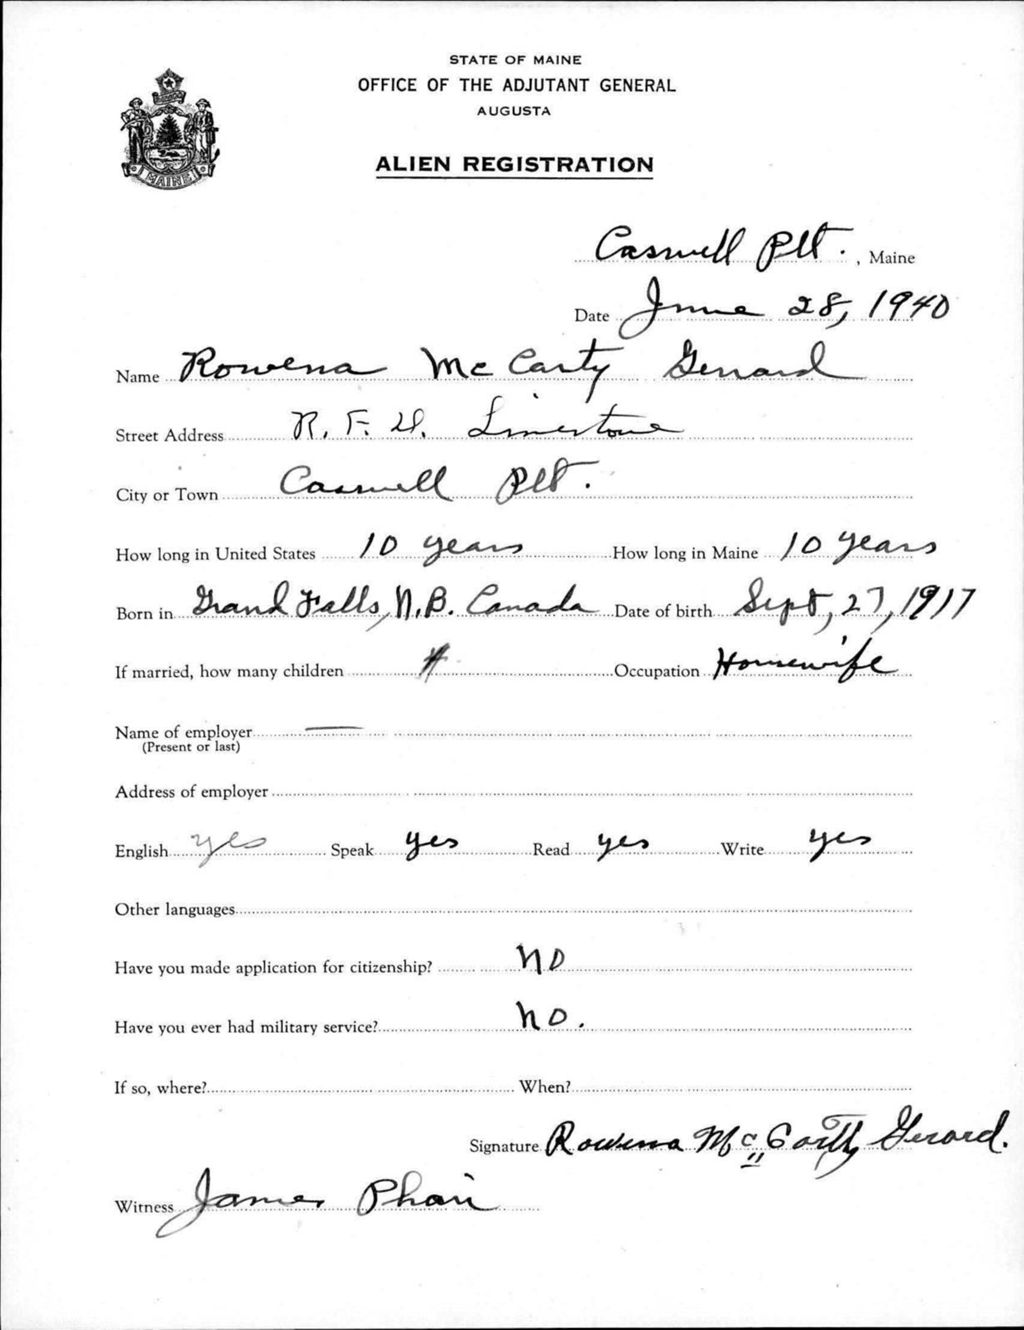 STATE OF MAINE
OFFICE OF THE ADJUTANT GENERAL
AUGUSTA
ALIEN REGISTRATION
MAINE
Caswell Plt. , Maine
Date June 28, 1940
Name Rowena McCarty Gerrard
Street Address R. F. D. Limestone
City or Town Caswell Plt.
How long in United States 10 years How long in Maine 10 years
Born in Grand Falls, N.B. Canada Date of birth Sept, 27, 1917
If married, how many children Occupation Housewife
Name of employer —
(Present or last)
Address of employer
English yes Speak yes Read yes Write yes
Other languages
Have you made application for citizenship? no
Have you ever had military service? no.
If so, where? When?
Signature Rowena McCarty Gerard.
Witness James Phair